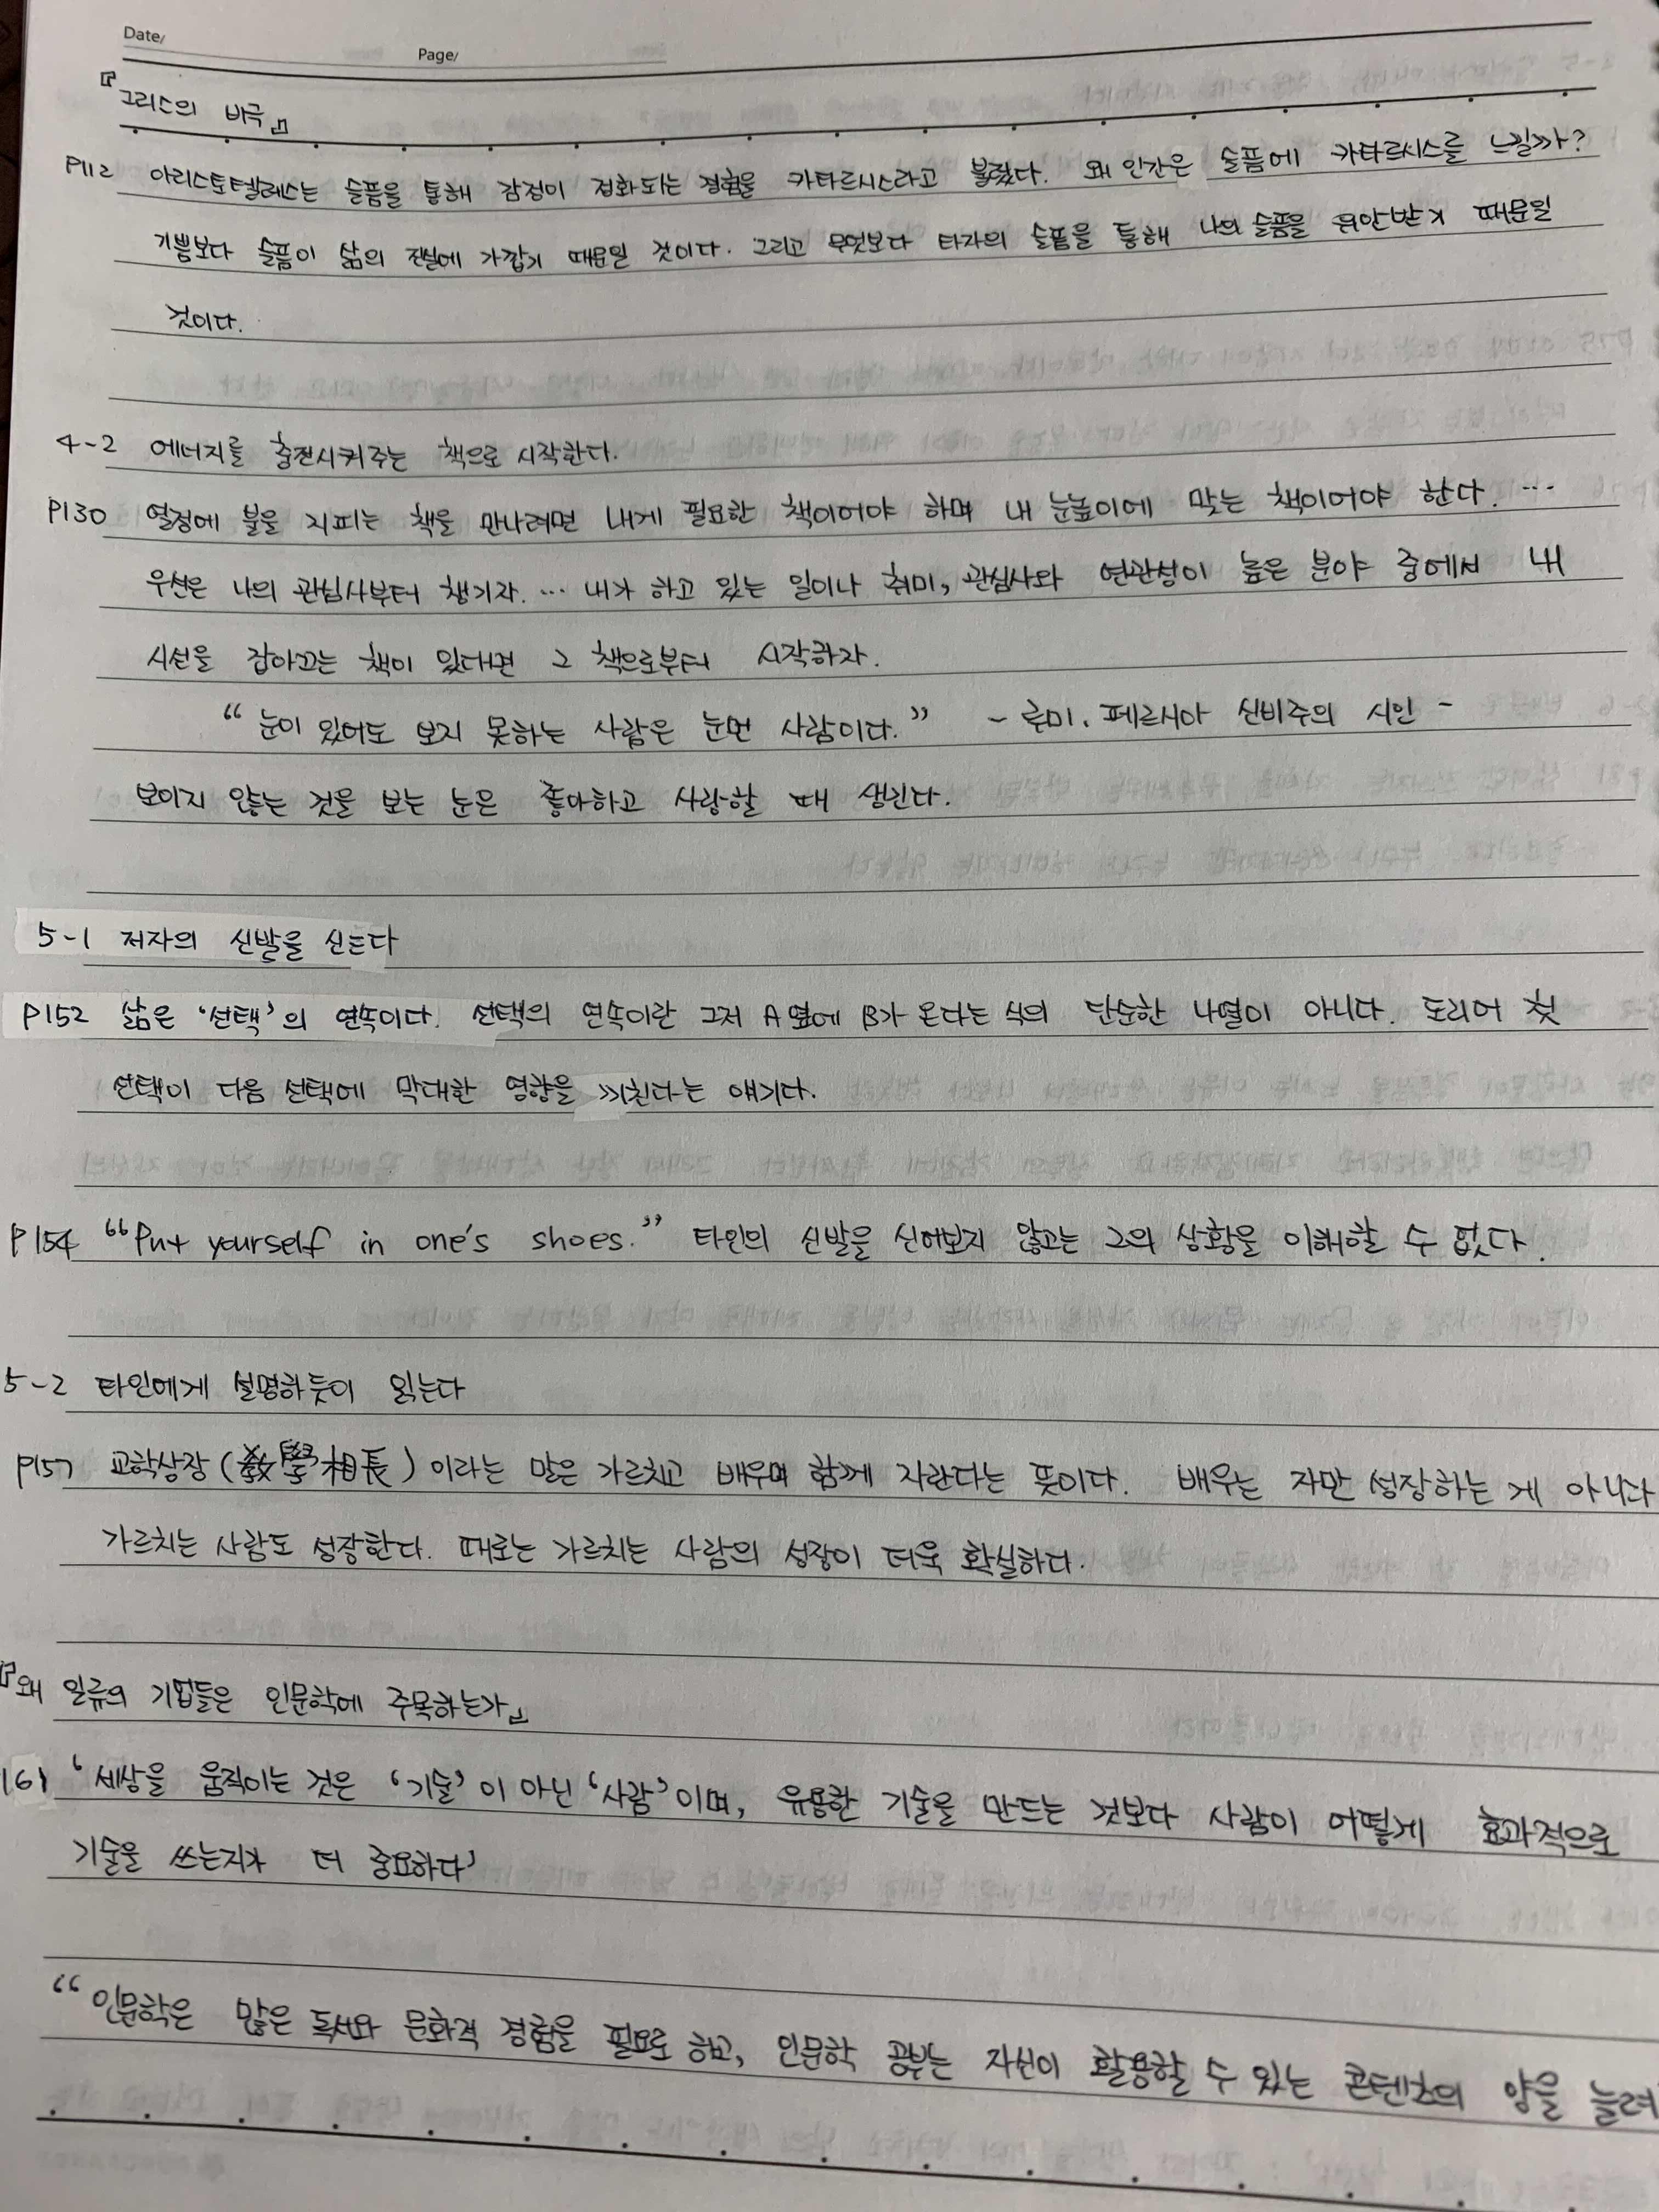 Date/
Page/
『그리스의 비극』
P112 아리스토텔레스는 슬픔을 통해 감정이 정화되는 경험을 카타르시스라고 불렀다. 왜 인간은 슬픔에 카타르시스를 느낄까?
기쁨보다 슬픔이 삶의 진실에 가깝기 때문일 것이다. 그리고 무엇보다 타자의 슬픔을 통해 나의 슬픔을 위안받기 때문일
것이다.
4-2 에너지를 충전시켜주는 책으로 시작한다.
P130 열정에 불을 지피는 책을 만나려면 내게 필요한 책이어야 하며 내 눈높이에 맞는 책이어야 한다. …
우선은 나의 관심사부터 챙기자. … 내가 하고 있는 일이나 취미, 관심사와 연관성이 높은 분야 중에서 내
시선을 잡아끄는 책이 있다면 그 책으로부터 시작하자.
“눈이 있어도 보지 못하는 사람은 눈먼 사람이다.” - 루미. 페르시아 신비주의 시인 -
보이지 않는 것을 보는 눈은 좋아하고 사랑할 때 생긴다.
5-1 저자의 신발을 신는다
P152 삶은 ‘선택’의 연속이다. 선택의 연속이란 그저 A옆에 B가 온다는 식의 단순한 나열이 아니다. 도리어 첫
선택이 다음 선택에 막대한 영향을 끼친다는 얘기다.
P154 “Put yourself in one's shoes.” 타인의 신발을 신어보지 않고는 그의 상황을 이해할 수 없다.
5-2 타인에게 설명하듯이 읽는다
P157 교학상장(敎學相長)이라는 말은 가르치고 배우며 함께 자란다는 뜻이다. 배우는 자만 성장하는 게 아니라
가르치는 사람도 성장한다. 때로는 가르치는 사람의 성장이 더욱 확실하다.
『왜 일류의 기업들은 인문학에 주목하는가』
161 ‘세상을 움직이는 것은 ‘기술’이 아닌 ‘사람’이며, 유용한 기술을 만드는 것보다 사람이 어떻게 효과적으로
기술을 쓰는지가 더 중요하다’
“인문학은 많은 독서와 문화적 경험을 필요로 하고, 인문학 공부는 자신이 활용할 수 있는 콘텐츠의 양을 늘려